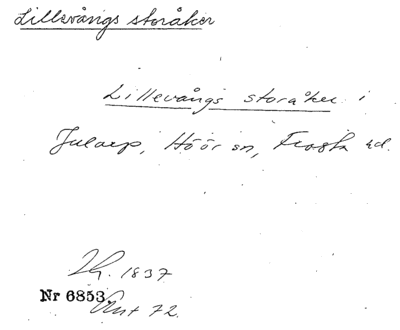 Lillevångs storåker
Lillevångs storåker i
Jularp, Höör sn, Frosta hd.
Lh. 1837
Nr 6853.
Ant 72.